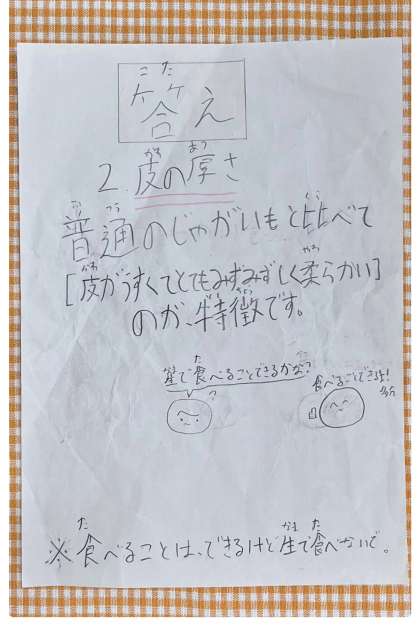 答え
2. 皮の厚さ
普通のじゃがいもと比べて
[皮がうすくてとてもみずみずしく柔らかい]
のが、特徴です。
生で食べることできるかな?
?
食べることできるよ!
多分
※食べることは、できるけど生で食べないで。